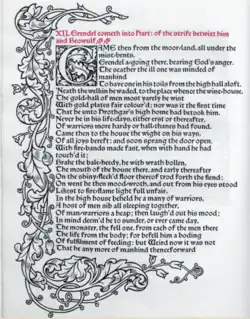 XII. Grendel cometh into Hart: of the strife betwixt him
and Beowulf.
CAME then from the moor-land, all under the
mist-bents,
Grendel a-going there, bearing God's anger.
The scather the ill one was minded of
mankind
To have one in his toils from the high hall aloft.
'Neath the welkin he waded, to the place whence the wine-house,
The gold-hall of men most yarely he wist
With gold plates fair colour'd; nor was it the first time
That he unto Hrothgar's high home had betook him.
Never he in his life-days, either erst or thereafter,
Of warriors more hardy or hall-thanes had found.
Came then to the house the wight on his ways,
Of all joys bereft; and soon sprang the door open,
With fire-bands made fast, when with hand he had
touch'd it;
Brake the bale-heedy, he with wrath bollen,
The mouth of the house there, and early thereafter
On the shiny-fleck'd floor thereof trod forth the fiend;
On went he then mood-wroth, and out from his eyes stood
Likest to fire-flame light full unfair.
In the high house beheld he a many of warriors,
A host of men sib all sleeping together,
Of man-warriors a heap; then laugh'd out his mood;
In mind deem'd he to sunder, or ever came day,
The monster, the fell one, from each of the men there
The life from the body; for befell him a boding
Of fulfilment of feeding: but Weird now it was not
That he any more of mankind thenceforward